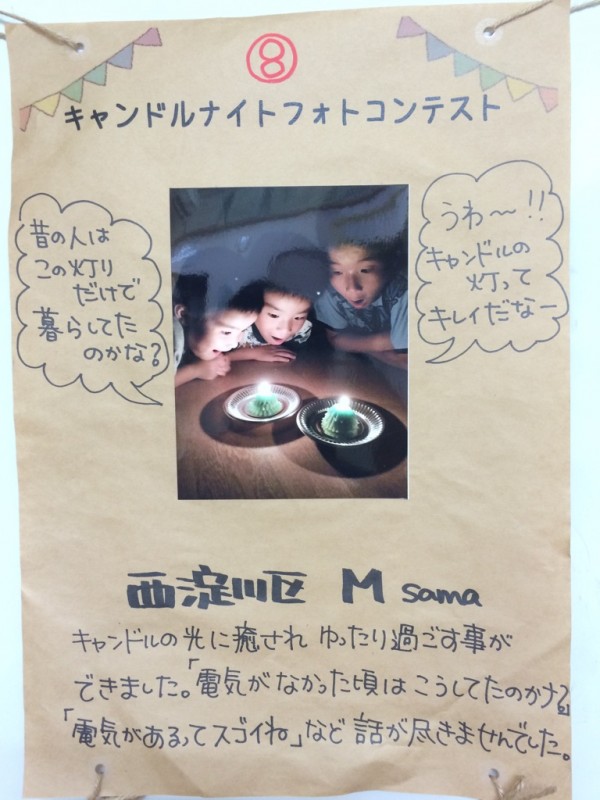 ⑧
キャンドルナイトフォトコンテスト
昔の人は
この灯り
だけで
暮らしてた
のかな?
うわ〜!!
キャンドルの
灯って
キレイだなー
西淀川区 M sama
キャンドルの光に癒され ゆったり過ごす事が
できました。「電気がなかった頃はこうしてたのかナ?」
「電気があるってスゴイね」など話が尽きませんでした。